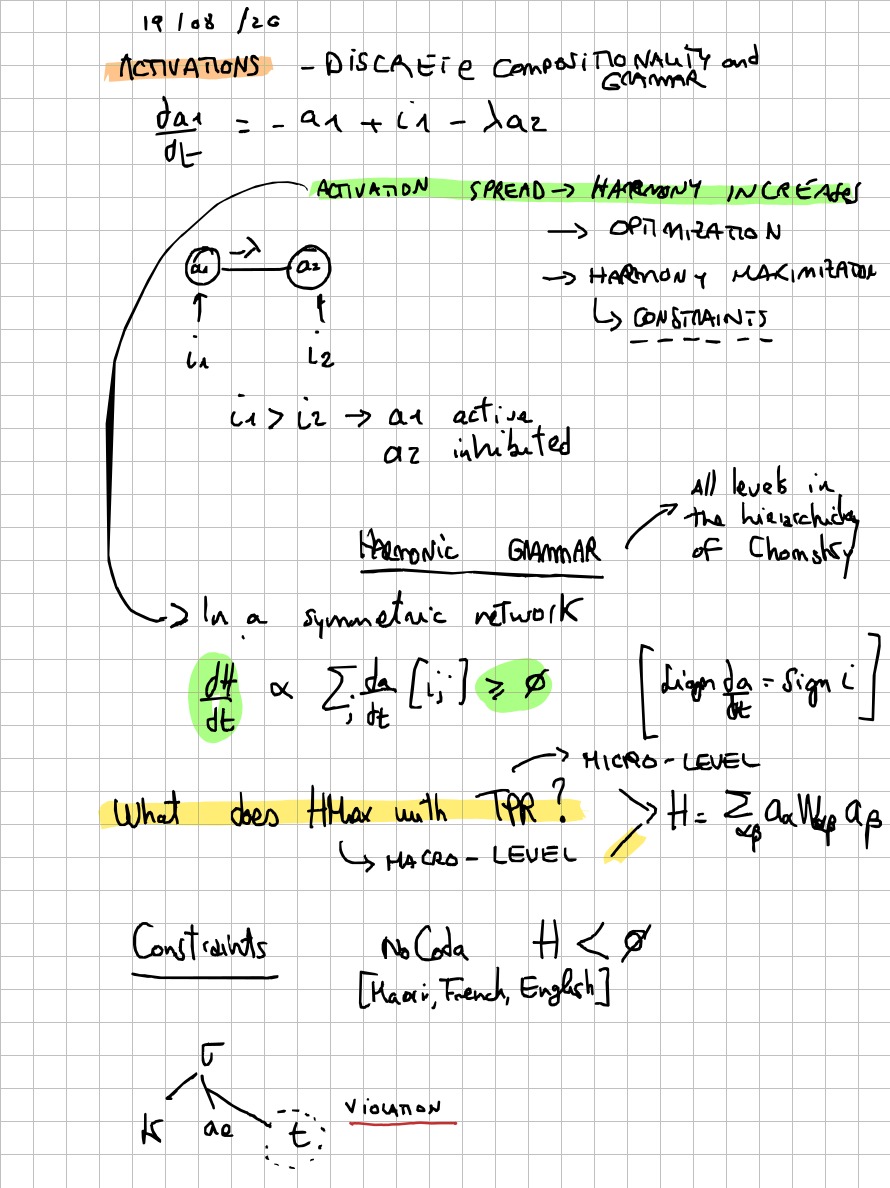 19/08/20
ACTIVATIONS - DISCRETE COMPOSITIONALITY and
GRAMMAR
da1/dt = - a1 + i1 - λa2
ACTIVATION SPREAD → HARMONY INCREASES
→ OPTIMIZATION
→ HARMONY MAXIMIZATION
↳ CONSTRAINTS
→λ
a1 a2
i1 i2
i1 > i2 → a1 active
a2 inhibited
All levels in
the hierarchy
of Chomsky
HARMONIC GRAMMAR
In a symmetric network
dH/dt ∝ Σj da/dt [ij] ≥ ∅ [Sign da/dt = Sign i]
→ MICRO-LEVEL
What does HMax with TPR? > H = Σαβ aα Wαβ aβ
↳ MACRO-LEVEL
Constraints NoCoda H < ∅
[Maori, French, English]
σ
k ae t VIOLATION